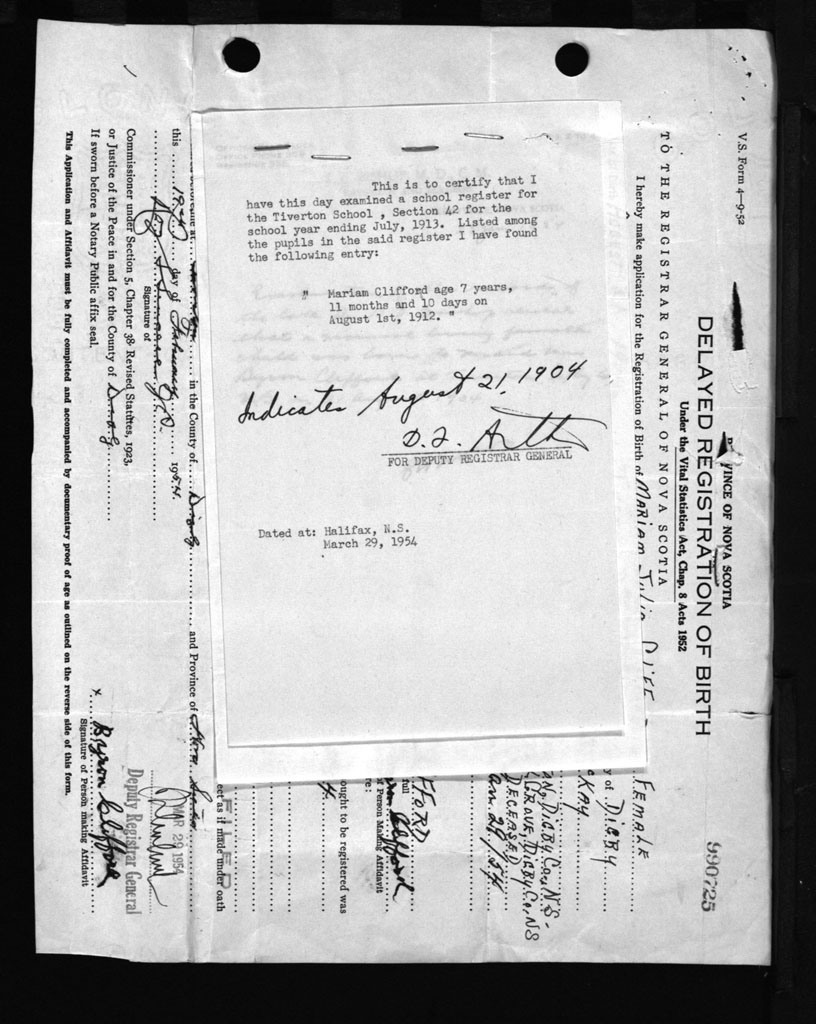 This is to certify that I
have this day examined a school register for
the Tiverton School , Section 42 for the
school year ending July, 1913. Listed among
the pupils in the said register I have found
the following entry:
" Mariam Clifford age 7 years,
11 months and 10 days on
August 1st, 1912. "
Indicates August 21, 1904
D. F.
FOR DEPUTY REGISTRAR GENERAL
Dated at: Halifax, N.S.
March 29, 1954
V.S. Form 4-9-52
VINCE OF NOVA SCOTIA
DELAYED REGISTRATION OF BIRTH
990725
Under the Vital Statistics Act, Chap. 8 Acts 1952
TO THE REGISTRAR GENERAL OF NOVA SCOTIA
I hereby make application for the Registration of Birth of MARIAM Julia
FEMALE
y of DIGBY
KAY
DIGBY Co. N.S.
GROVE, DIGBY Co, NS
DECEASED
an 29, 54
FORD
full
Clifford
of Person Making Affidavit
ought to be registered was
FILED
eet as if made under oath
in the County of Digby and Province of Nova Scotia
this 19th day of February 1954.
Signature of
Commissioner under Section 5, Chapter 38 Revised Statutes, 1923,
or Justice of the Peace in and for the County of Digby
If sworn before a Notary Public affix seal.
MAR 29 1954
Deputy Registrar General
x Byron Clifford
Signature of Person making Affidavit
This Application and Affidavit must be fully completed and accompanied by documentary proof of age as outlined on the reverse side of this form.